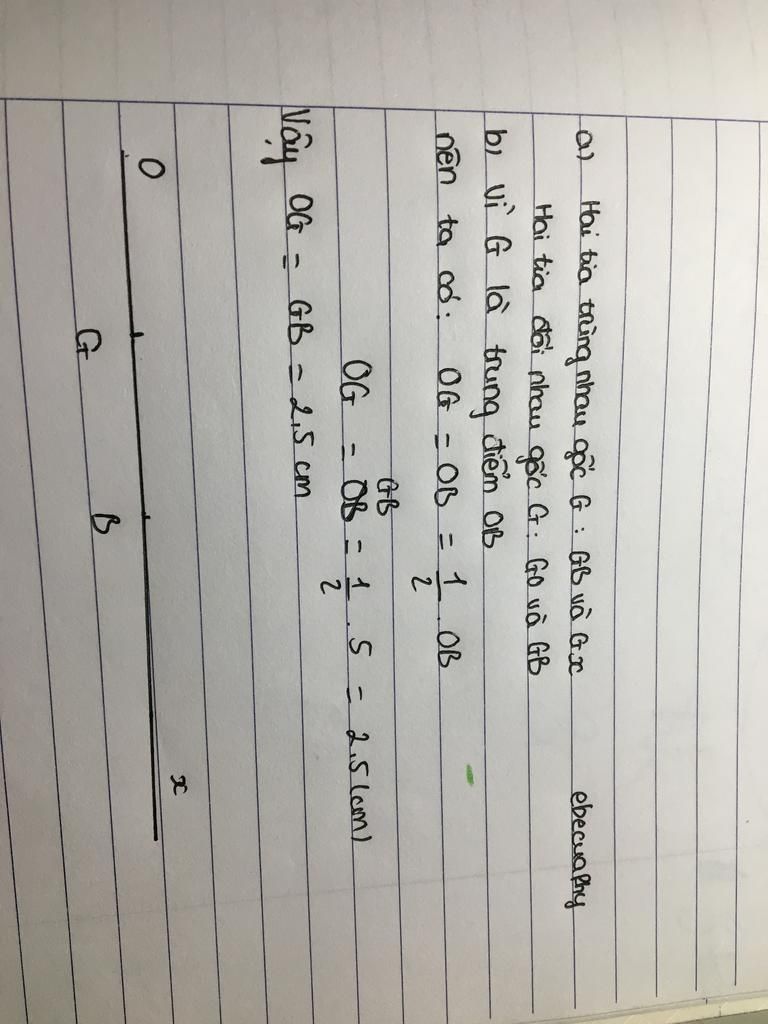 a) Hai tia trùng nhau gốc G : GB và Gx
ebecuaPhy
Hai tia đối nhau gốc G : GO và GB
b) Vì G là trung điểm OB
nên ta có : OG = OB = 1/2 . OB
GB
OG = OB = 1/2 . 5 = 2,5 (cm)
Vậy OG = GB = 2,5 cm
O G B x